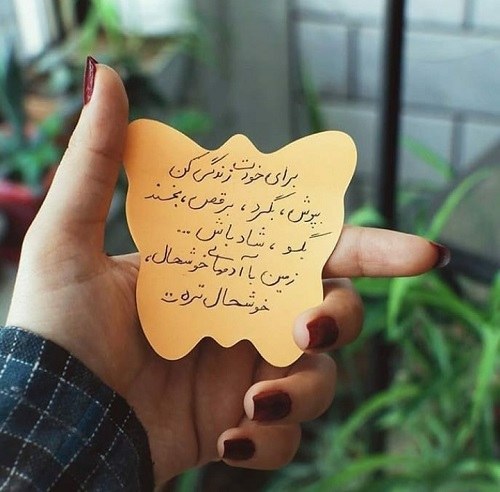 برای خودت زندگی کن
بپوش، بگرد، برقص، بخند
بگو، شاد باش ...
زمین با آدمهای خوشحال،
خوشحال تره